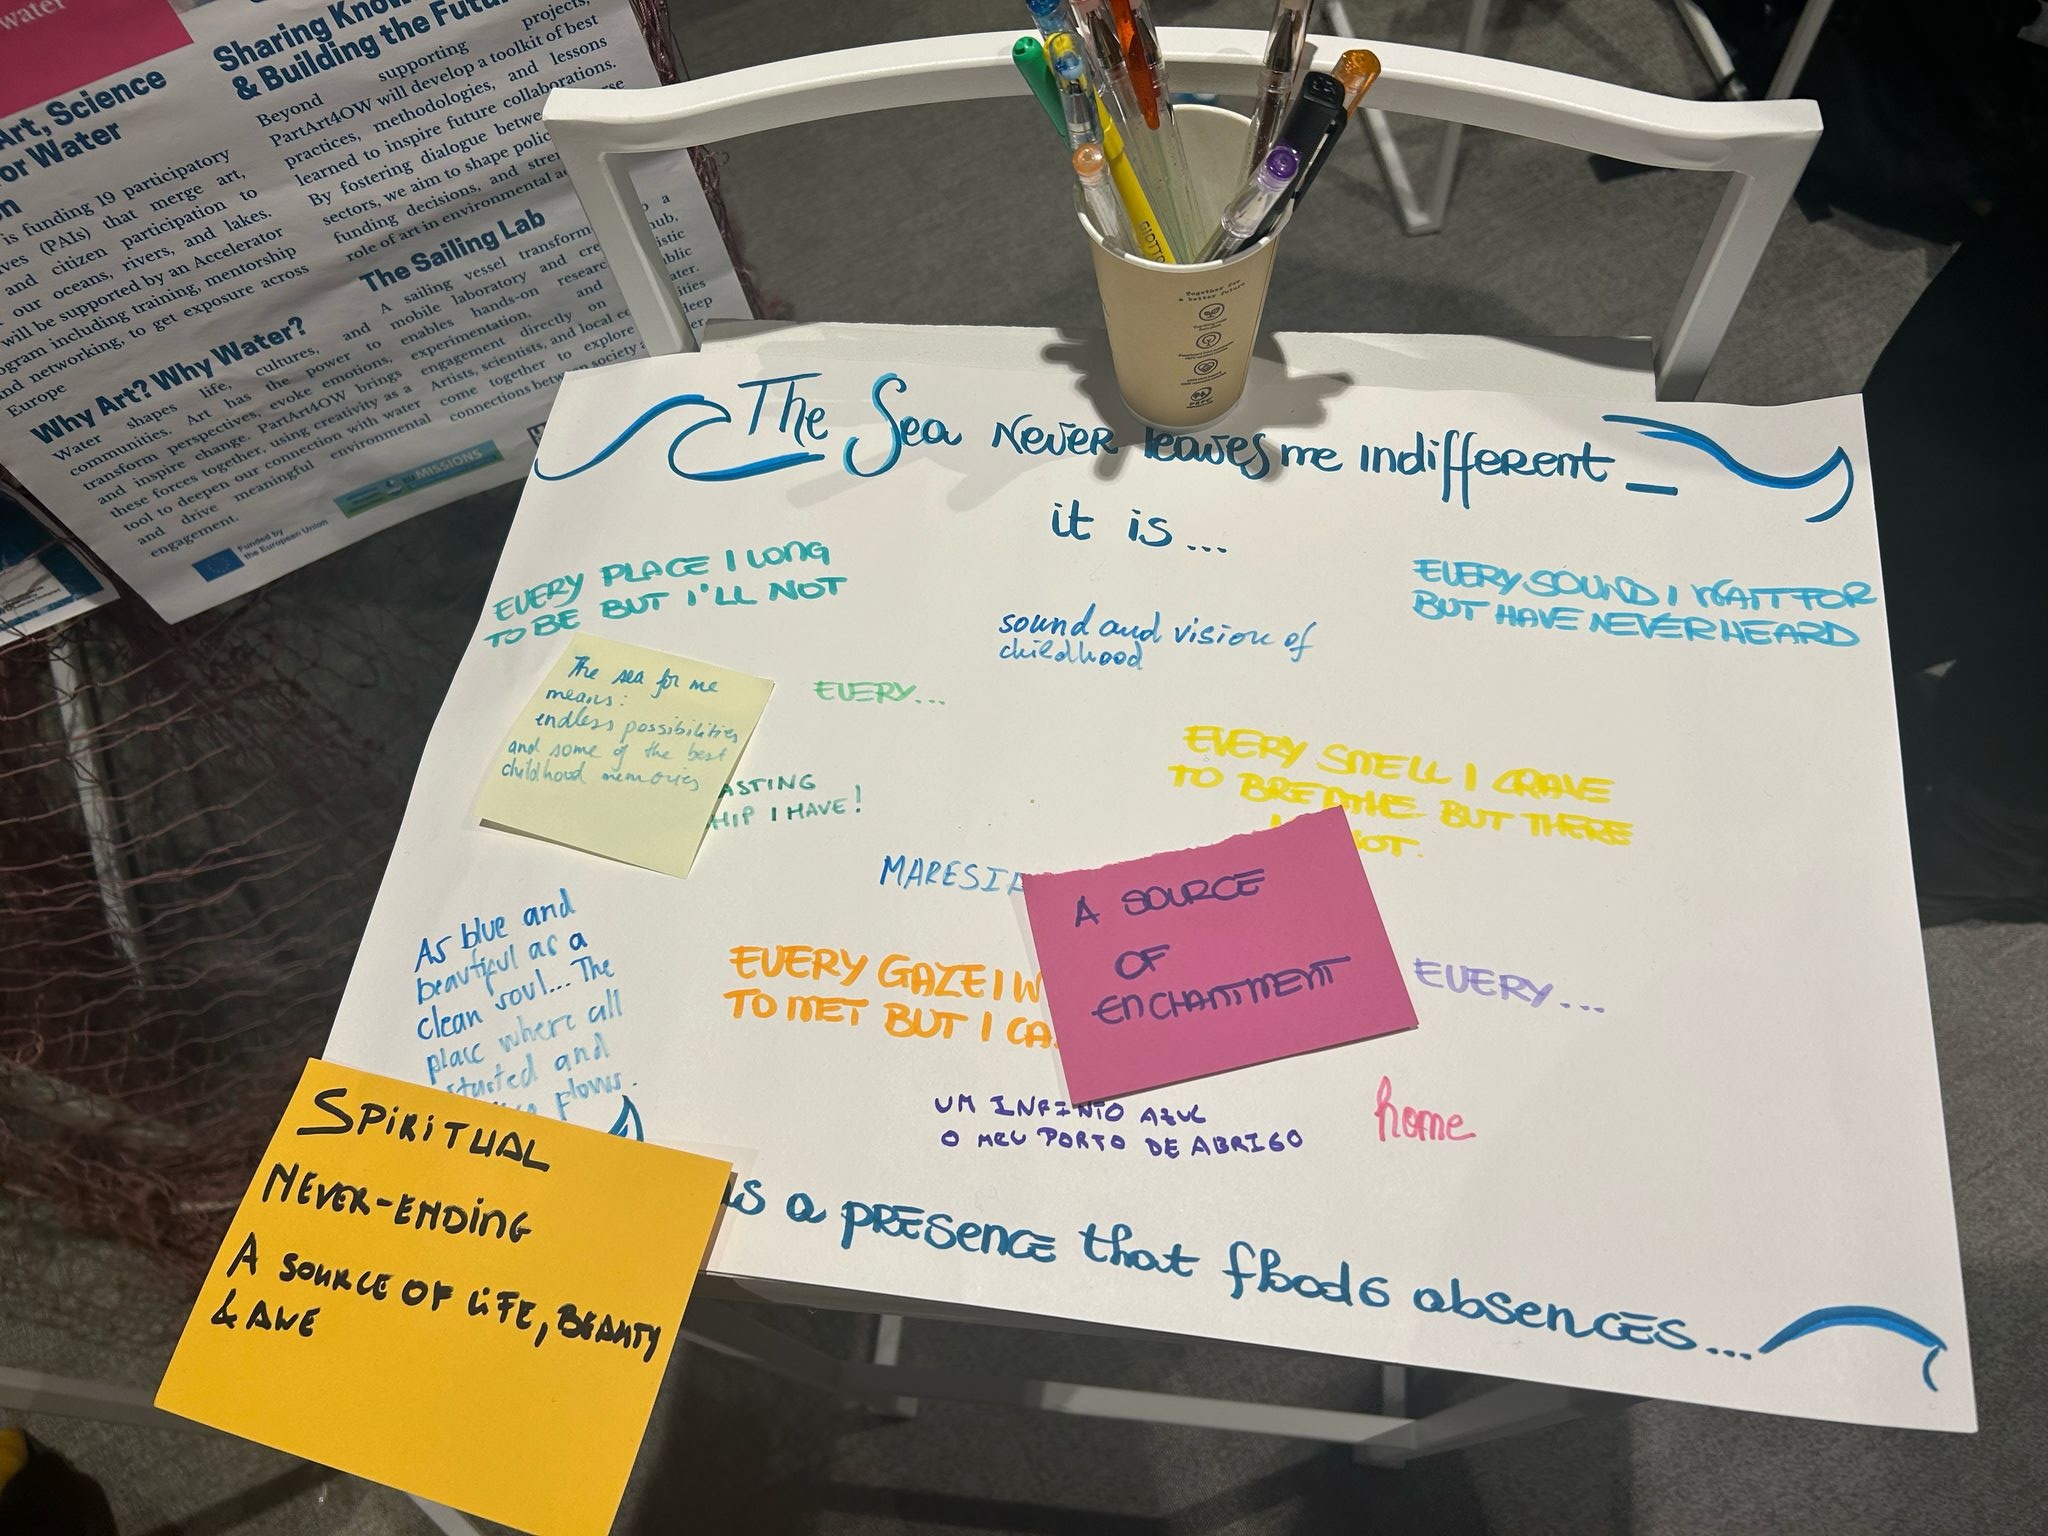 water
Art, Science
or Water
is funding 19 participatory
(PAIs) that merge art,
and citizen participation to
our oceans, rivers, and lakes.
will be supported by an Accelerator
including training, mentorship
and networking, to get exposure across
Europe
Why Art? Why Water?
Water shapes life, cultures, and
communities. Art has the power to
transform perspectives, evoke emotions,
and inspire change. PartArt4OW brings
these forces together, using creativity as a
tool to deepen our connection with water
and drive meaningful environmental
engagement.
Funded by
the European Union
EU MISSIONS
Sharing
& Building the
Beyond supporting projects,
PartArt4OW will develop a toolkit of best
practices, methodologies, and lessons
learned to inspire future collaborations.
By fostering dialogue
sectors, we aim to shape
funding decisions, and
role of art in environmental
The Sailing Lab
A sailing vessel
mobile laboratory and
enables hands-on
experimentation, and
engagement directly on
Artists, scientists, and local
come together to explore
connections between society
GIOTTO
Together for
a better future
The Sea never leaves me indifferent _
it is...
EVERY PLACE I LONG
TO BE BUT I'LL NOT
sound and vision of
childhood
EVERY SOUND I WAIT FOR
BUT HAVE NEVER HEARD
The sea for me
means:
endless possibilities
and some of the best
childhood memories
EVERY...
ASTING
HIP I HAVE!
EVERY SMELL I CRAVE
TO BREATHE BUT THERE
MARESIA
A SOURCE
OF
ENCHANTMENT
As blue and
beautiful as a
clean soul... The
place where all
started and
flows.
EVERY GAZE I W
TO MET BUT I CA
EVERY...
UM INFINITO AZUL
O MEU PORTO DE ABRIGO
home
SPIRITUAL
NEVER-ENDING
A SOURCE OF LIFE, BEAUTY
& AWE
as a presence that floods absences...